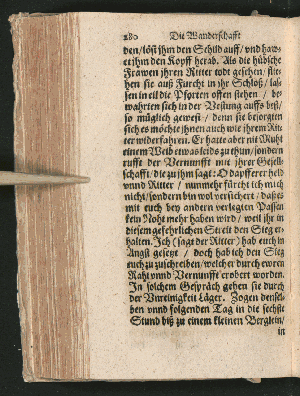 280 Die Wanderschafft
den/löst jhm den Schild auff/ vnd haw-
et jhm den Kopff herab. Als die hübsche
Frawen jhren Ritter todt gesehen/ flie-
hen sie auß Furcht in jhr Schloß/ las-
sen in eil die Pforten offen stehen / be-
wahrten sich in der Vestung auffs best/
so müglich gewest / denn sie besorgten
sich es möchte jhnen auch wie jhrem Rit-
ter widerfahren. Er hatte aber nit Muht
einem Weib etwas leids zu thun/sondern
ruffe der Vernunfft mit jhrer Gesell-
schafft/ die zu jhm sagt: O dapfferer held
vnnd Ritter / nunmehr fürcht ich mich
nicht/sondern bin wol versichert/ daß es
mit euch bey andern verlegten Passen
kein Noht mehr haben wird / weil jhr in
diesem gefehrlichen Streit den Sieg er-
halten. Jch (sagt der Ritter) hab euch in
Angst gesetzt / doch hab ich den Sieg
euch zu zuschreiben/welcher durch ewren
Raht vnnd Vernunfft erobert worden.
Jn solchem Gespräch gehen sie durch
der Vnreinigkeit Läger. Zogen densel-
ben vnnd folgenden Tag in die sechste
Stund biß zu einem kleinen Berglein/
in